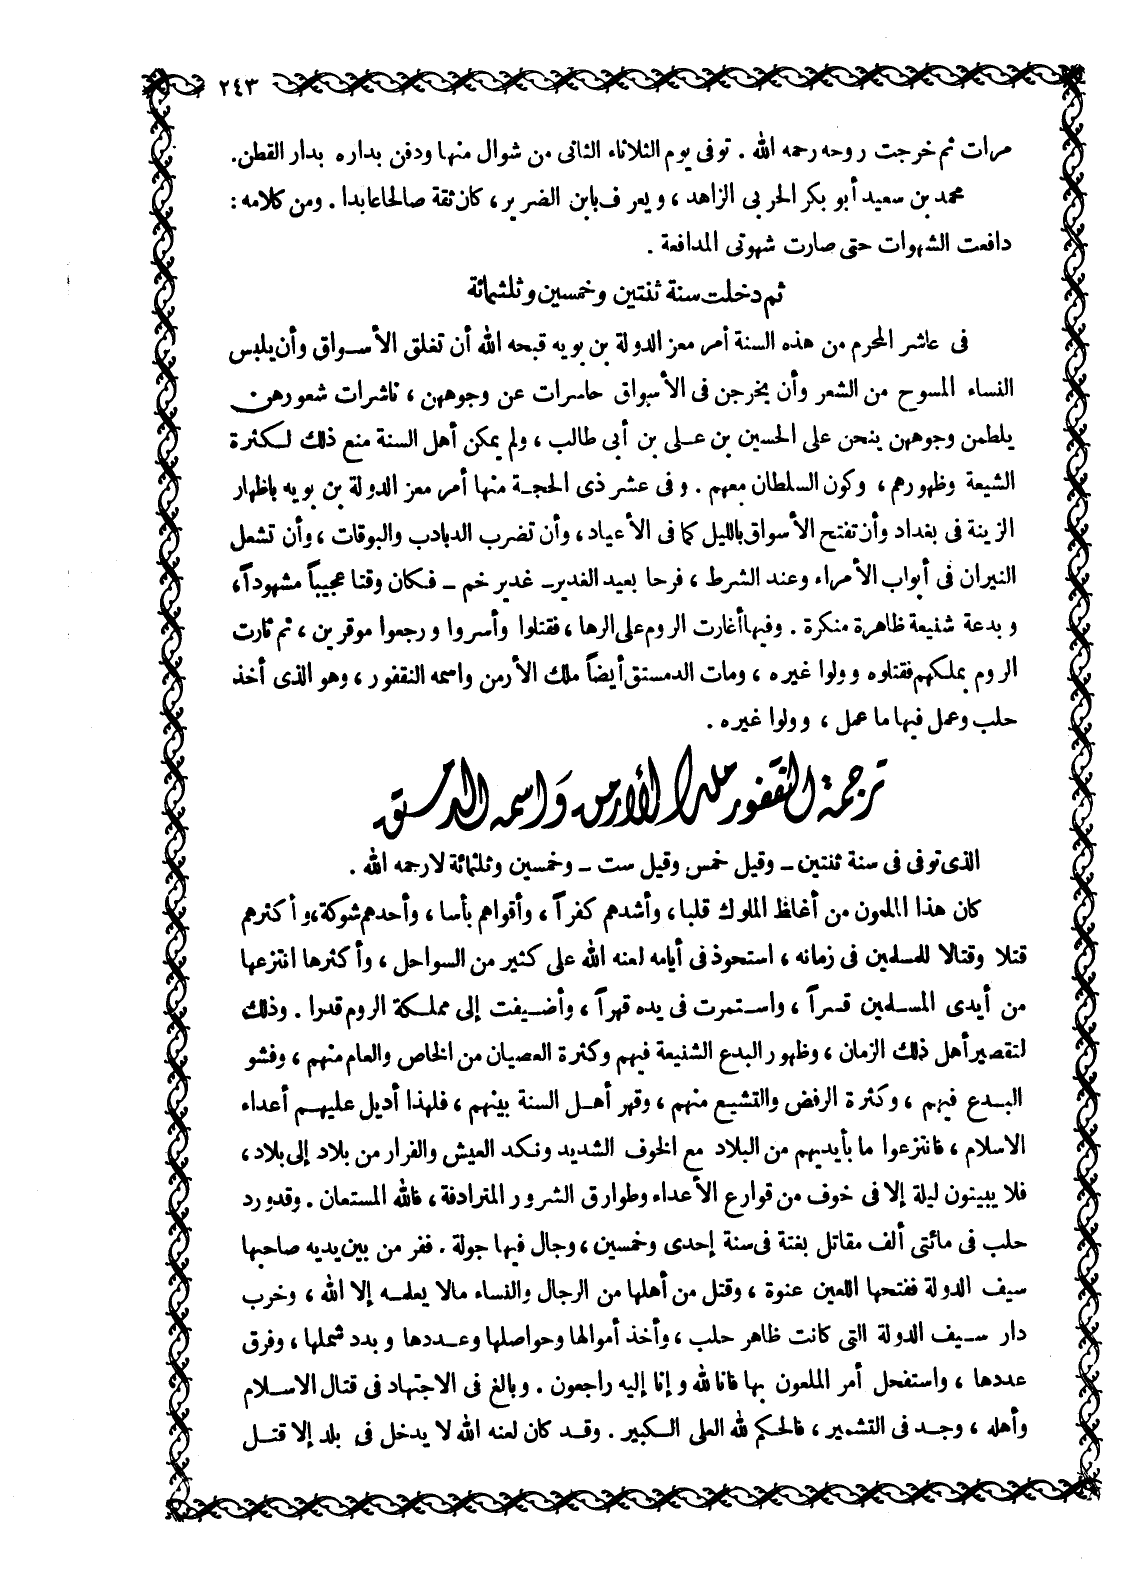 ٢٤٣
مرات ثم خرجت روحه رحمه الله . توفى يوم الثلاثاء الثانى من شوال منها ودفن بداره بدار القطن.
محمد بن سعيد أبو بكر الحربى الزاهد ، ويعرف بابن الضرير ، كان ثقة صالحا عابدا . ومن كلامه :
دافعت الشهوات حتى صارت شهوتى المدافعة .
ثم دخلت سنة ثنتين وخمسين وثلثمائة
فى عاشر المحرم من هذه السنة أمر معز الدولة بن بويه قبحه الله أن تغلق الأسواق وأن يلبس
النساء المسوح من الشعر وأن يخرجن فى الأسواق حاسرات عن وجوههن ، ناشرات شعورهن
يلطمن وجوههن ينحن على الحسين بن على بن أبى طالب ، ولم يمكن أهل السنة منع ذلك لكثرة
الشيعة وظهورهم ، وكون السلطان معهم . وفى عشر ذى الحجة منها أمر معز الدولة بن بويه باظهار
الزينة فى بغداد وأن تفتح الأسواق بالليل كما فى الأعياد ، وأن تضرب الدبادب والبوقات ، وأن تشعل
النيران فى أبواب الأمراء وعند الشرط ، فرحا بعيد الغدير - غدير خم - فكان وقتا عجيباً مشهوداً ،
وبدعة شنيعة ظاهرة منكرة . وفيها أغارت الروم على الرها ، فقتلوا وأسروا ورجعوا موقرين ، ثم ثارت
الروم بملكهم فقتلوه وولوا غيره ، ومات الدمستق أيضاً ملك الأرمن واسمه النقفور ، وهو الذى أخذ
حلب وعمل فيها ما عمل ، وولوا غيره .
ترجمة النقفور ملك الأرمن واسمه الدمستق
الذى توفى فى سنة ثنتين - وقيل خمس وقيل ست - وخمسين وثلثمائة لا رحمه الله .
كان هذا الملعون من أغلظ الملوك قلبا ، وأشدهم كفراً ، وأقواهم بأسا ، وأحدهم شوكة ، وأكثرهم
قتلا وقتالا للمسلمين فى زمانه ، استحوذ فى أيامه لعنه الله على كثير من السواحل ، وأكثرها انتزعها
من أيدى المسلمين قسراً ، واستمرت فى يده قهراً ، وأضيفت إلى مملكة الروم قدرا . وذلك
لتقصير أهل ذلك الزمان ، وظهور البدع الشنيعة فيهم وكثرة العصيان من الخاص والعام منهم ، وفشو
البدع فيهم ، وكثرة الرفض والتشيع منهم ، وقهر أهل السنة بينهم ، فلهذا أديل عليهم أعداء
الاسلام ، فانتزعوا ما بأيديهم من البلاد مع الخوف الشديد ونكد العيش والفرار من بلاد إلى بلاد ،
فلا يبيتون ليلة إلا فى خوف من قوارع الأعداء وطوارق الشرور المترادفة ، فالله المستعان . وقد ورد
حلب فى مائتى ألف مقاتل بغتة فى سنة إحدى وخمسين ، وجال فيها جولة . ففر من بين يديه صاحبها
سيف الدولة ففتحها اللعين عنوة ، وقتل من أهلها من الرجال والنساء مالا يعلمه إلا الله ، وخرب
دار سيف الدولة التى كانت ظاهر حلب ، وأخذ أموالها وحواصلها وعددها وبدد شملها ، وفرق
عددها ، واستفحل أمر الملعون بها فانا لله وإنا إليه راجعون . وبالغ فى الاجتهاد فى قتال الاسلام
وأهله ، وجد فى التشمير ، فالحكم لله العلى الكبير . وقد كان لعنه الله لا يدخل فى بلد إلا قتل